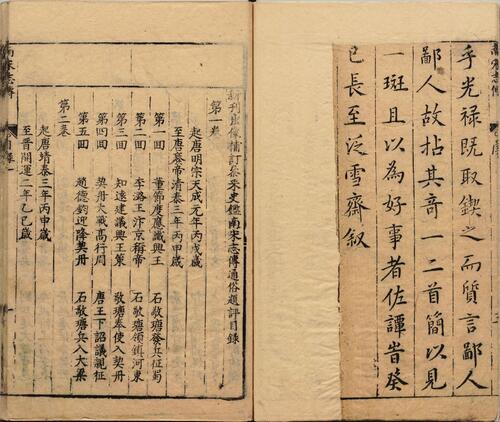 乎光禄既取鍥之而質言鄙人
鄙人故拈其奇一二首簡以見
一斑且以為好事者佐譚旹癸
巳長至泛雪齋叙
新刊出像補訂叅采史鑑南宋志傳通俗題評目錄
第一卷
起唐明宗天成元年丙戌歲
至唐廢帝清泰三年丙申歲
第一回 董節度應讖興王 石敬瑭發兵征蜀
第二回 李潞王汴京稱帝 石敬瑭領鎮河東
第三回 知遠建議興王策 敬瑭奉使入契丹
第四回 契丹大戰高行周 唐王下詔議親征
第五回 趙德鈞迎降契丹 石敬瑭兵入大梁
第二卷
起唐靖泰三年丙申歲
至晉開運二年乙巳歲
南宋志傳 目錄 一